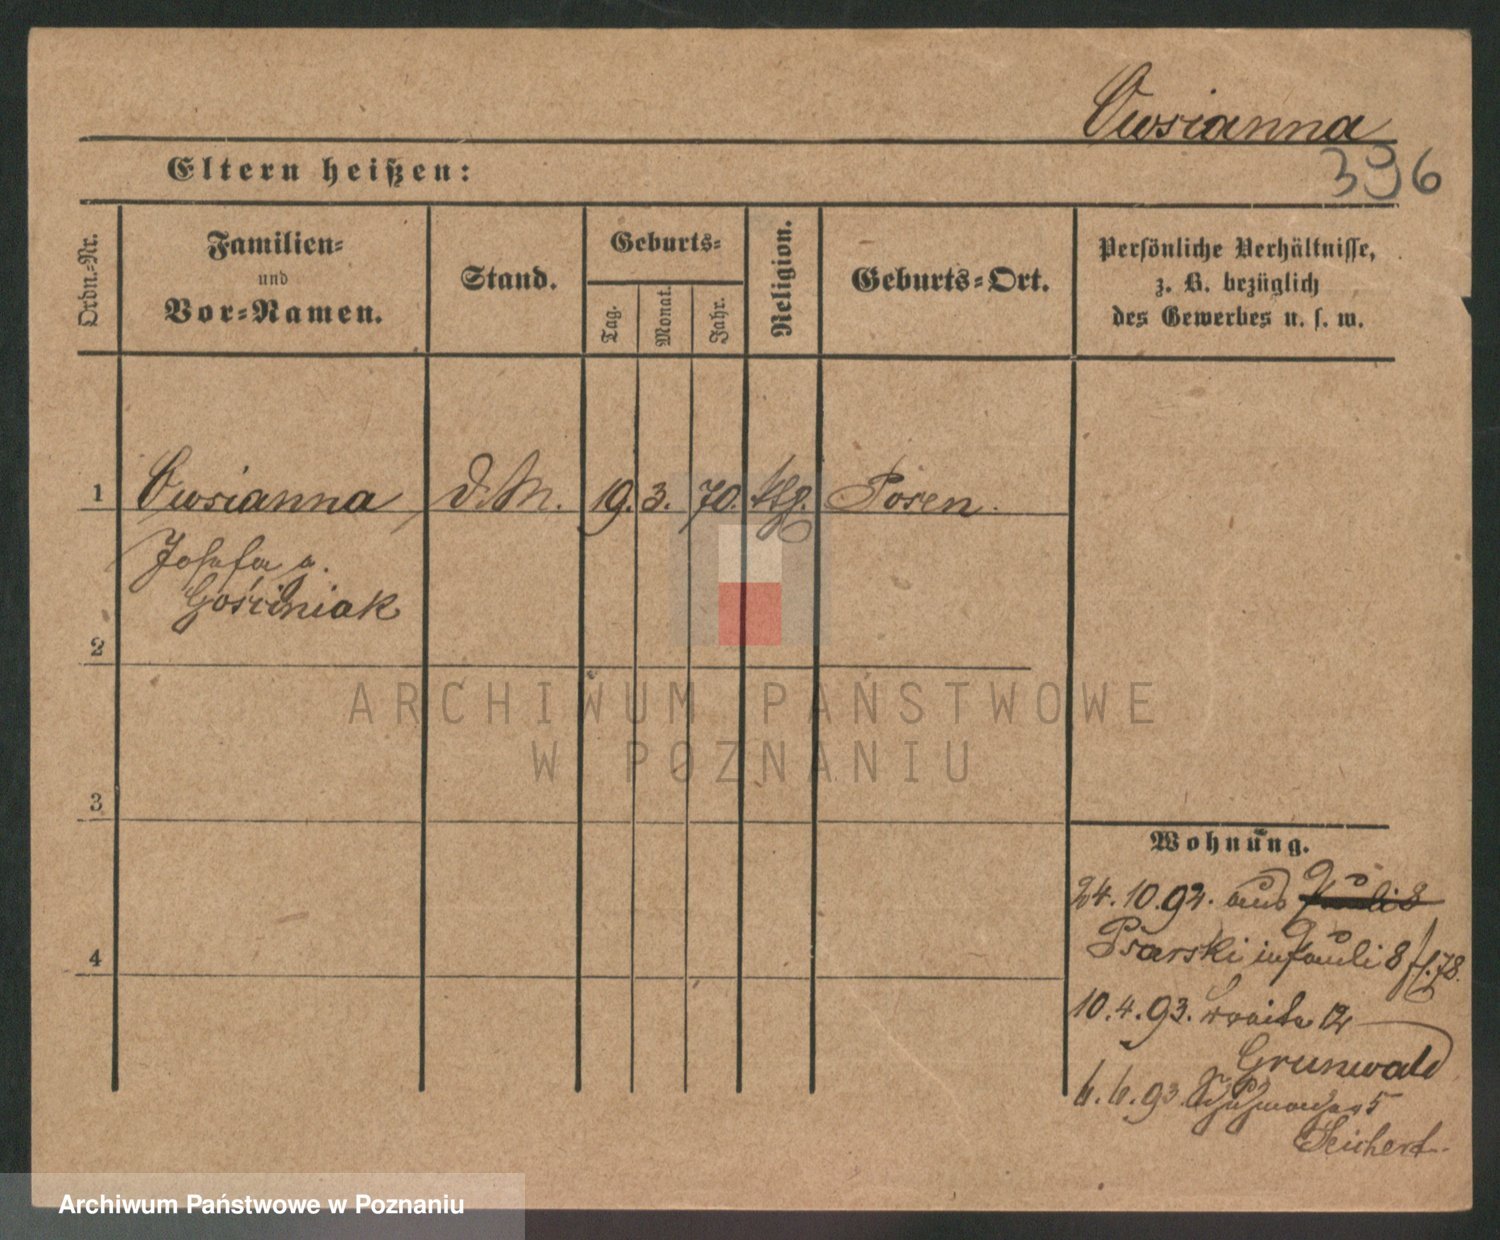 Owsianna
396
Eltern heißen:
Ordn.-Nr.
Familien-
und
Vor-Namen.
Stand.
Geburts-
Tag.
Monat.
Jahr.
Religion.
Geburts-Ort.
Persönliche Verhältnisse,
z. B. bezüglich
des Gewerbes u. s. w.
1 Owsianna d. M. 19. 3. 70. ktg. Posen.
Josefa g.
Gościniak
2
3
4
Wohnung.
24. 10. 92. aus
Psarski in Pauli 8
10. 4. 93. breite 12
Grunwald
6. 6. 93. Schuhmacher 5
Seichert
ARCHIWUM PAŃSTWOWE
W POZNANIU
Archiwum Państwowe w Poznaniu